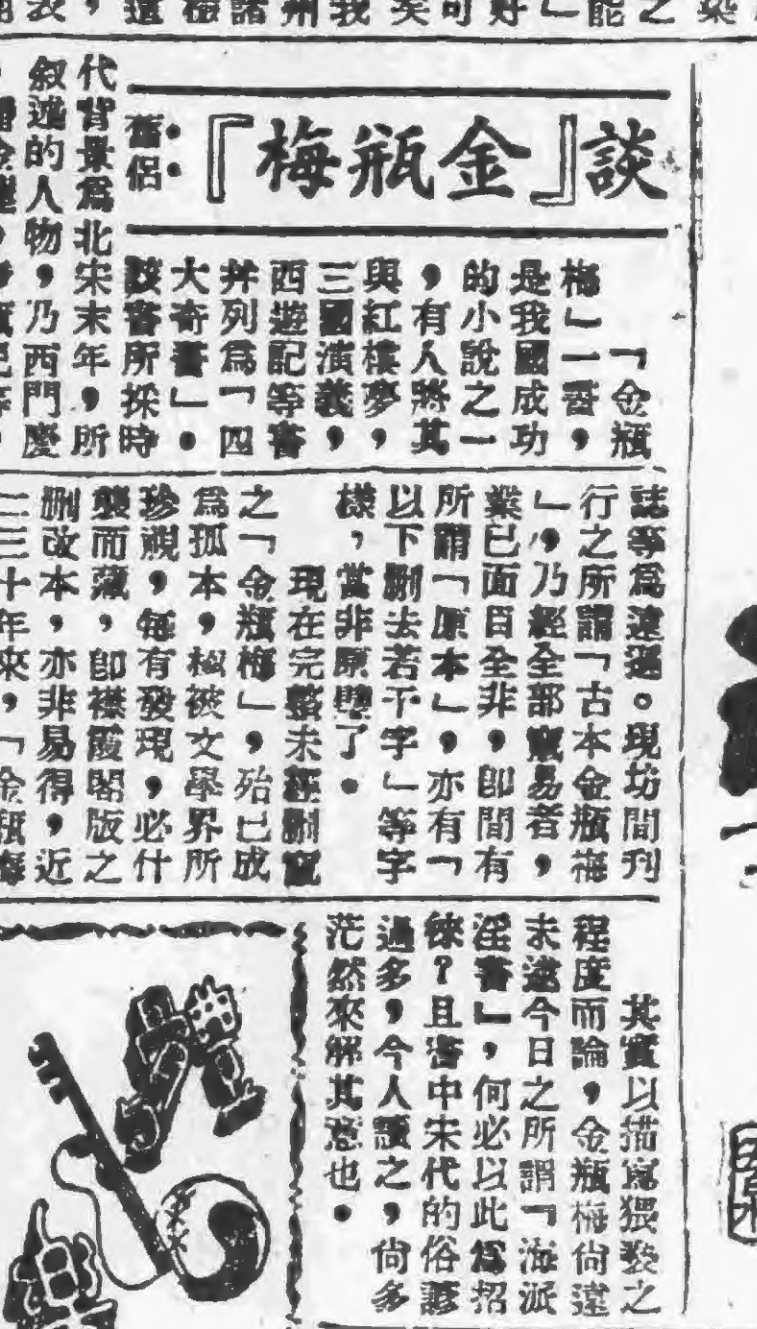 談『金瓶梅』
舊侶
「金瓶
梅」一書，
是我國成功
的小說之一
，有人將其
與紅樓夢，
三國演義，
西遊記等書
并列爲「四
大奇書」。
該書所採時
代背景爲北宋末年，所
叙述的人物，乃西門慶
誌等爲遠遜。現坊間刊
行之所謂「古本金瓶梅
」，乃經全部竄易者，
業已面目全非，即間有
所謂「原本」，亦有「
以下刪去若干字」等字
樣，當非原璧了。
現在完整未經刪竄
之「金瓶梅」，殆已成
爲孤本，極被文學界所
珍視，每有發現，必什
襲而藏，即襟霞閣版之
刪改本，亦非易得，近
二三十年來，「金瓶梅
其實以描寫猥褻之
程度而論，金瓶梅尚遠
未逮今日之所謂「海派
淫書」，何必以此爲招
徠？且書中宋代的俗諺
過多，今人讀之，尚多
茫然來解其意也。